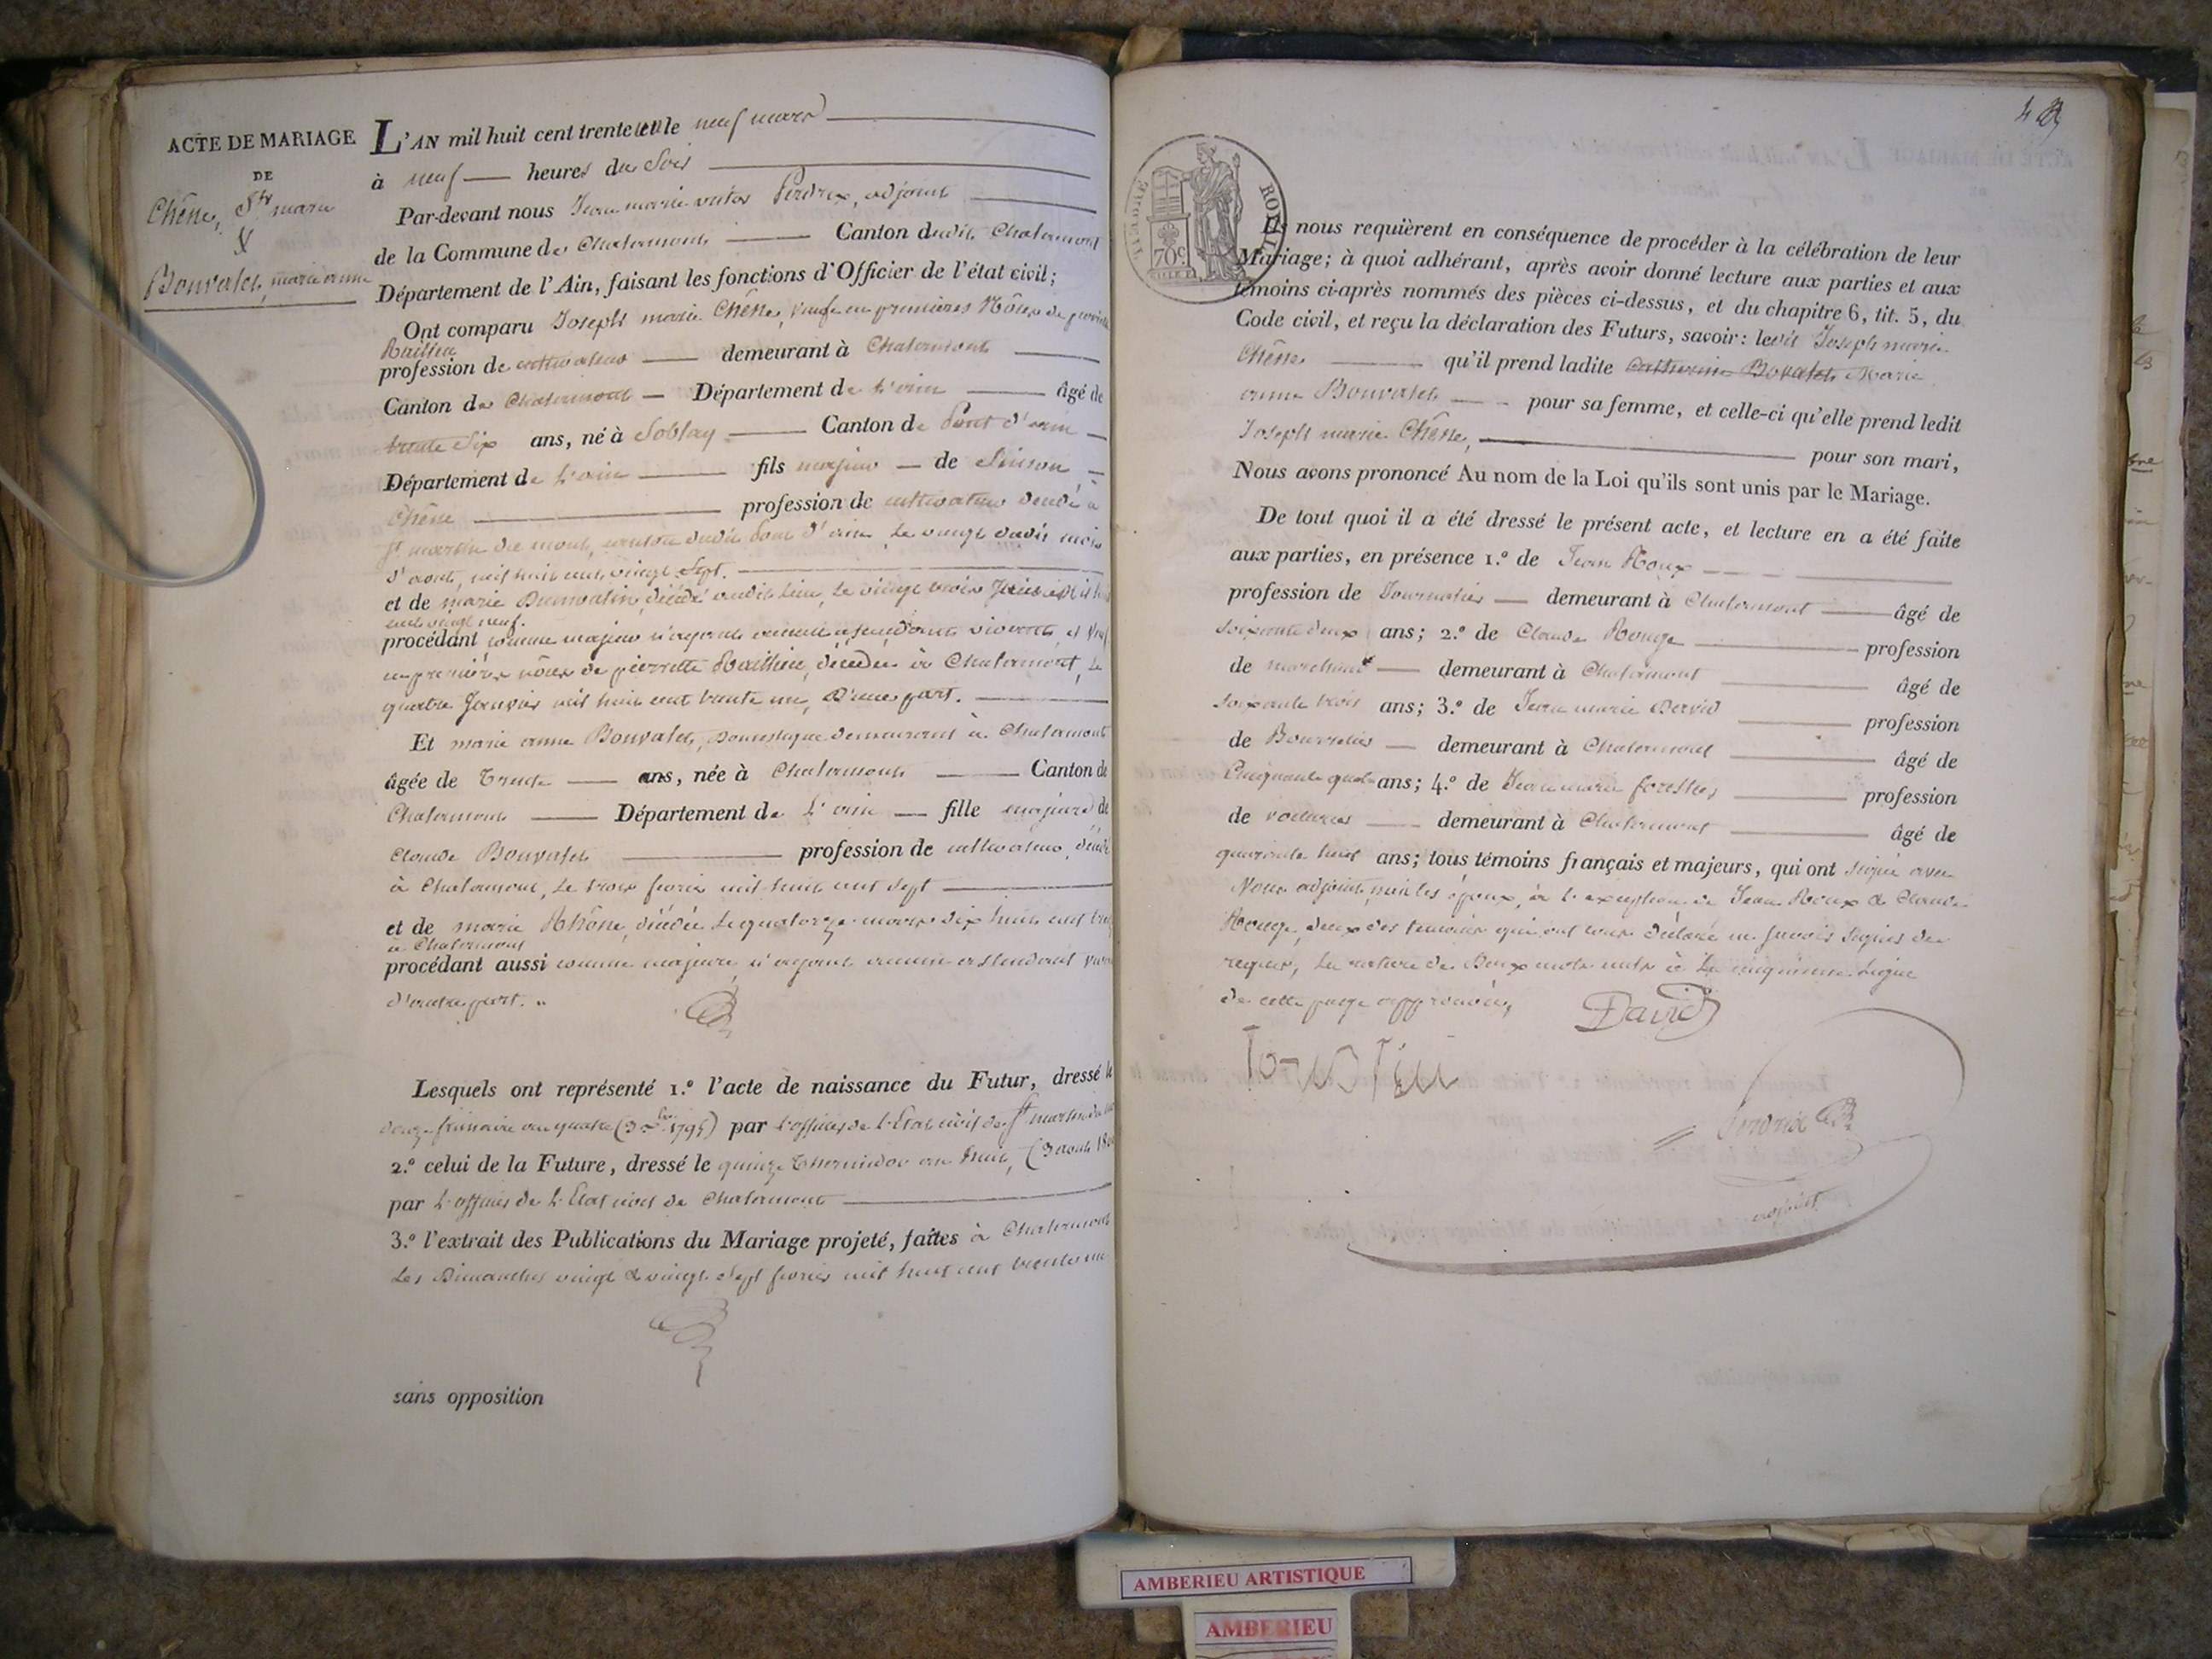 ACTE DE MARIAGE
DE
Chêne, Jph marie
&
Bonvalet, marie anne
L'AN mil huit cent trente et un le neuf mars
à neuf heures du Soir
Par-devant nous Jean marie victor Perdrix, adjoint
de la Commune de Chalamont Canton dudit Chalamont
Département de l'Ain, faisant les fonctions d'Officier de l'état civil;
Ont comparu Joseph marie Chêne, veuf en premières Nôces de pierrette
profession de cultivateur demeurant à Chalamont
Canton de Chalamont Département de L'ain âgé de
trente Six ans, né à Soblay Canton de Pont d'ain
Département de L'ain fils majeur de
Chêne profession de cultivateur décédé à
St martin du mont, canton dudit Pont d'ain, Le vingt dudit mois
d'août, mil huit cent vingt Sept.
et de marie décédé audit Lieu, Le vingt trois
cent vingt neuf.
procédant comme majeur n'ayant aucuns ascendants vivants et veuf
en premières nôces de pierrette décédée à Chalamont, Le
quatre Janvier mil huit cent trente un, D'une part.
Et marie anne Bonvalet, Domestique demeurant à Chalamont
âgée de Trente ans, née à Chalamont Canton de
Chalamont Département de L'ain fille majeure de
Claude Bonvalet profession de cultivateur, décédé
à Chalamont, Le trois février mil huit cent Sept
et de marie Rhône, décédée Le quatorze mars dix huit cent
à Chalamont
procédant aussi comme majeure n'ayant aucuns ascendants
d'autre part. "
Lesquels ont représenté 1.º l'acte de naissance du Futur, dressé le
douze frimaire an quatre (3 Xbre 1795) par L'officier de L'Etat civil de St martin du
2.º celui de la Future, dressé le quinze Thermidor an huit, (3 août
par L'officier de L'Etat civil de Chalamont
3.º l'extrait des Publications du Mariage projeté, faites à Chalamont
Les Dimanches vingt & vingt Sept février mil huit cent trente un
sans opposition
TIMBRE ROYAL
70c
Ils nous requièrent en conséquence de procéder à la célébration de leur
Mariage; à quoi adhérant, après avoir donné lecture aux parties et aux
témoins ci-après nommés des pièces ci-dessus, et du chapitre 6, tit. 5, du
Code civil, et reçu la déclaration des Futurs, savoir: ledit Joseph marie
Chêne qu'il prend ladite Catherine Bovalet Marie
anne Bonvalet pour sa femme, et celle-ci qu'elle prend ledit
Joseph marie Chêne, pour son mari,
Nous avons prononcé Au nom de la Loi qu'ils sont unis par le Mariage.
De tout quoi il a été dressé le présent acte, et lecture en a été faite
aux parties, en présence 1.º de Jean Roux
profession de Journalier demeurant à Chalamont âgé de
soixante deux ans; 2.º de Claude Rouge profession
de marchand demeurant à Chalamont âgé de
soixante trois ans; 3.º de Jean marie David profession
de Bourrelier demeurant à Chalamont âgé de
Cinquante quatre ans; 4.º de Jean marie forestier profession
de voiturier demeurant à Chalamont âgé de
quarante huit ans; tous témoins français et majeurs, qui ont signé avec
Nous adjoint, non les époux, à L'exception de Jean Roux & Claude
Rouge, deux des temoins qui ont tous déclaré ne Savoir Signer de
requis, La rature de Deux mots nuls à La cinquième Ligne
de cette page approuvée,
David
Perdrix
adjoint
AMBERIEU ARTISTIQUE
AMBERIEU